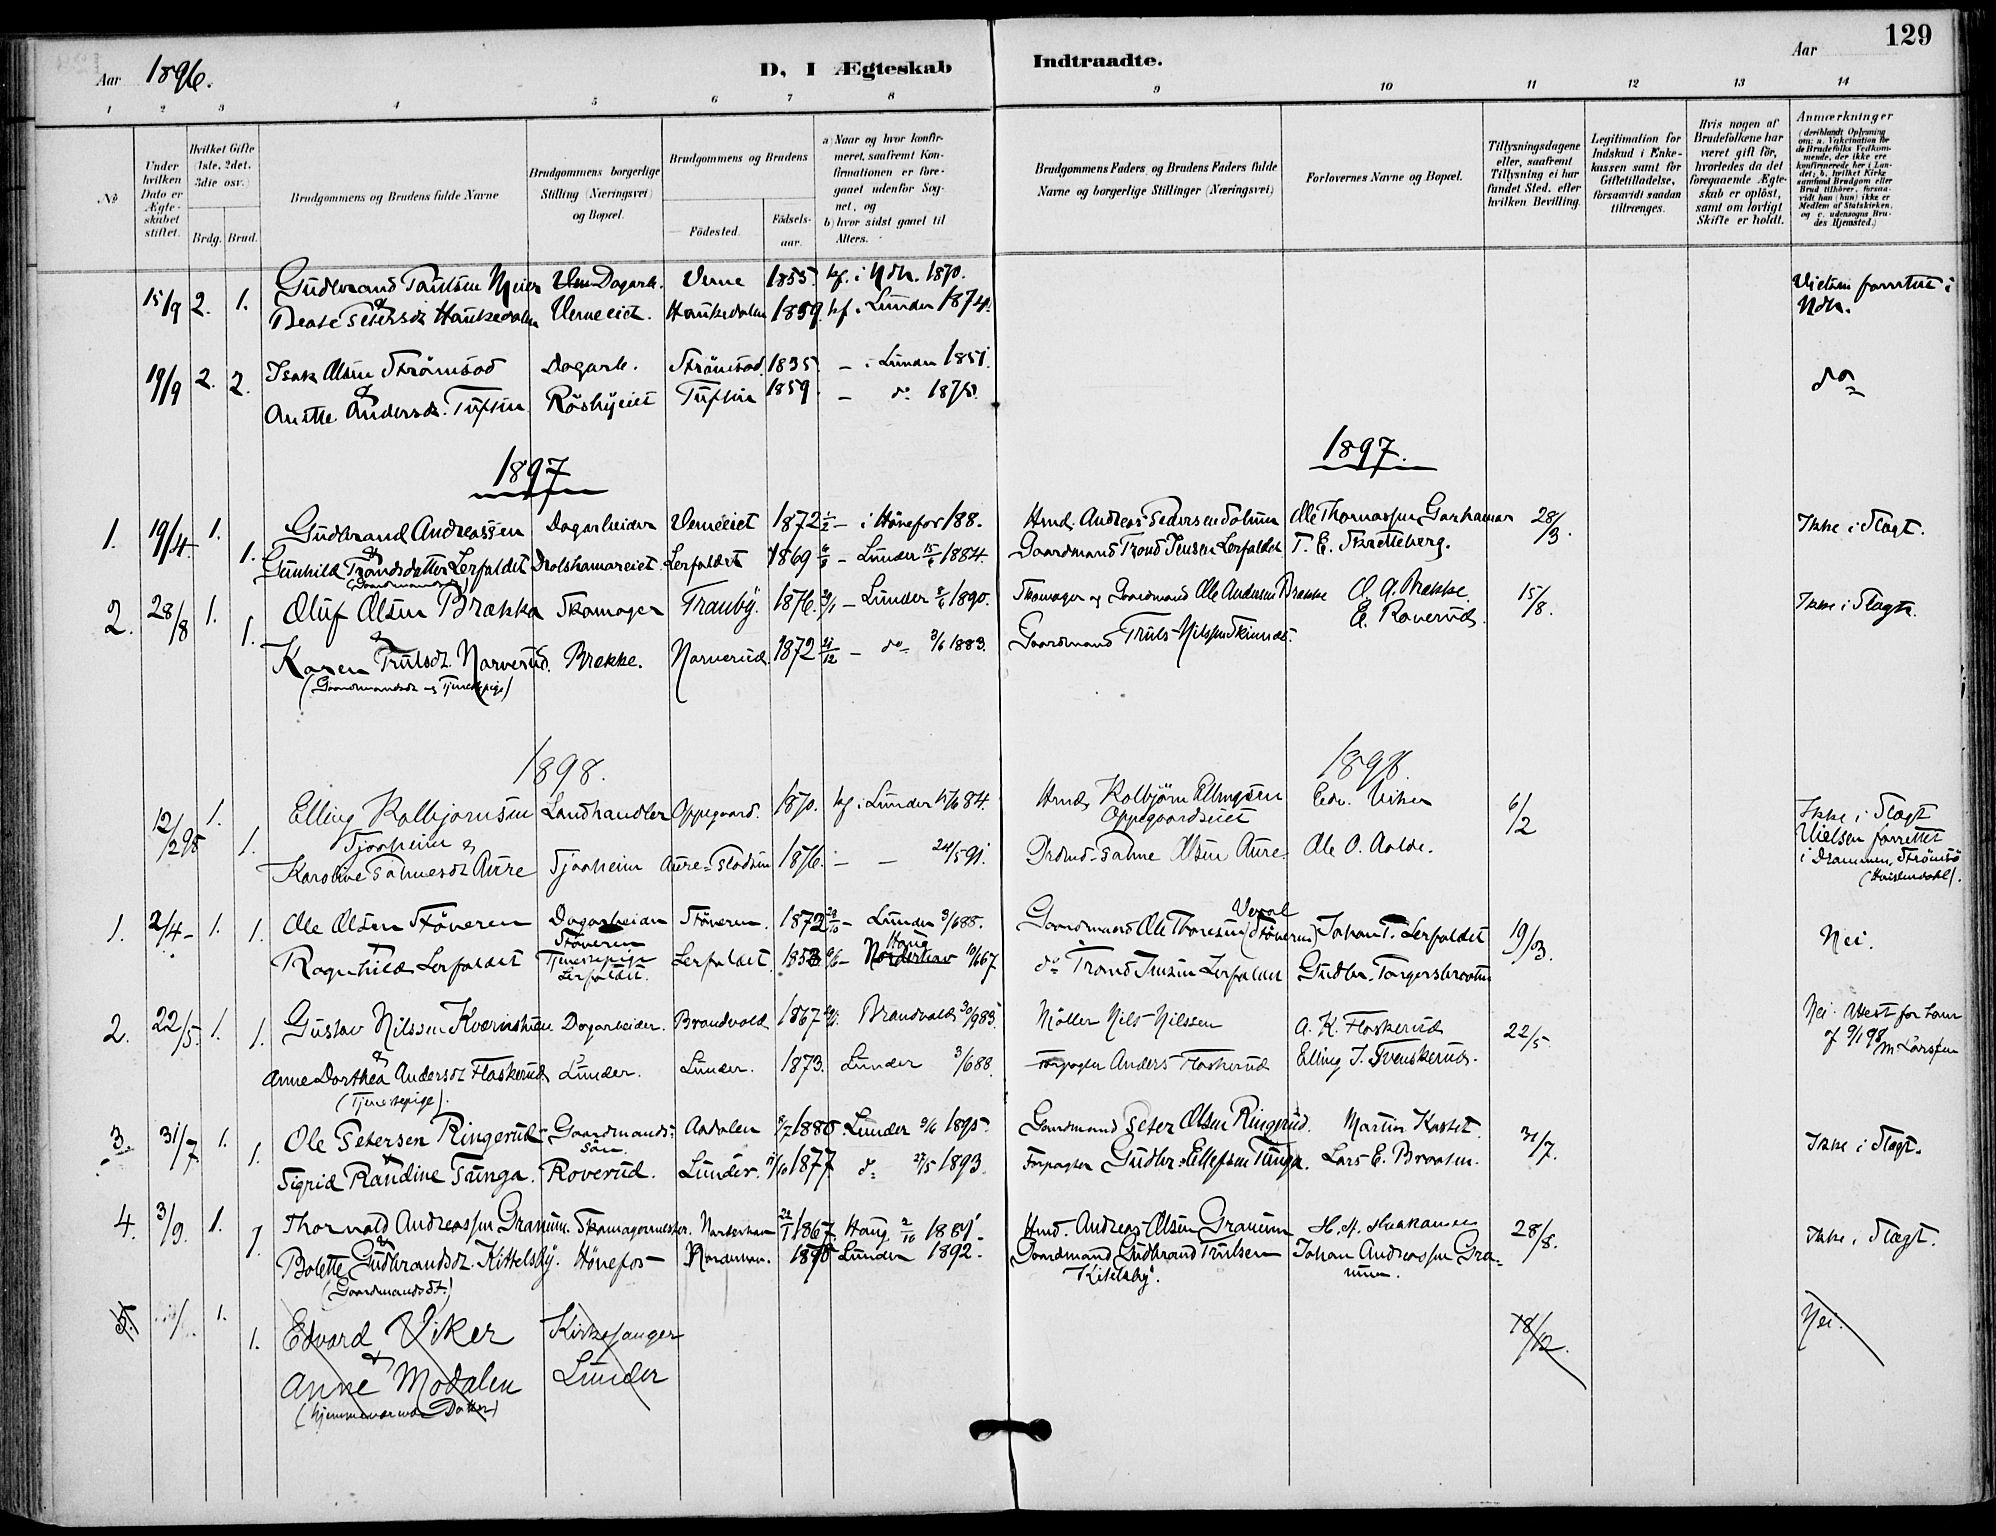 129
Aar 1896.
D, I Ægteskab Indtraadte.
Aar
1 2 3 4 5 6 7 8 9 10 11 12 13 14
No
Under hvilken Dato er Ægteskabet stiftet.
Hvilket Gifte (1ste. 2det. 3die osv.)
Brdg. Brud.
Brudgommens og Brudens fulde Navne
Brudgommens borgerlige Stilling (Næringsvei) og Bopæl.
Brudgommens og Brudens
Födested.
Födselsaar.
a) Naar og hvor konfirmeret, saafremt Konfirmationen er foregaaet udenfor Sognet, og
b) hvor sidst gaaet til Alters.
Brudgommens Faders og Brudens Faders fulde Navne og borgerlige Stillinger (Næringsvei)
Forlovernes Navne og Bopæl.
Tillysningsdagene eller, saafremt Tillysning ei har fundet Sted, efter hvilken Bevilling.
Legitimation for Indskud i Enkekassen samt for Giftetilladelse, forsaavidt saadan tiltrænges.
Hvis nogen af Brudefolkene har været gift för, hvorledes da det foregaaende Ægteskab er oplöst, samt om lovligt Skifte er holdt.
Anmærkninger
15/9 2. 1. Gudbrand Paulsen Dagarb. Verne 1855. kf. i Ndh. 1870. forrettet i Ndh.
& Beate Petersdt Haukedalen Verneeiet. Haukedalen 1859. kf. Lunder 1874.
19/9 2. 2. Isak Olsen Strömsod Dagarb. Strömsod 1835. – i Lunder 1851.
& Anette Andersdt. Tuftin Röshijeiet Tuftin 1859. – do 1875. do
1897 1897.
1. 19/4 1. Gudbrand Andreassen Dagarbeider Verneeiet 1872 – i Hönefos 188. Hmd. Andreas Pedersen Ole Thomassen 28/3. Ikke i Slægt.
1. & Gunhild Trondsdatter Lerfaldet Lerfaldet 1869 – Lunder 15/6 1884. Gaardmand Trond Jensen Lerfaldet T. E. Skretteberg.
2. 28/8 1. Oluf Olsen Brækka Skomager Tranby. 1876. – Lunder 1890. Skomager og Gaardmand Ole Andersen Brække O. A. Brække. 15/8. Ikke i Slægt.
1. & Karen Trulsdt. Narverud. Brække. Narverud. 1872 – do 3/6 1883. Gaardmand Truls Nilssen E. Roverud.
(Gaardmandsdt og Tjenestepige)
1898. 1898.
12/2 98 1. Elling Kolbjörnsen Landhandler Oppegaard. 1870. kf. i Lunder 84. Hmd. Kolbjörn Ellingsen Edv. Viker 6/2 Ikke i Slægt
Tjosheim & Oppegaardseiet Vielsen forrettet
1. Karoline Aure Tjosheim Aure 1876. – – 24/5 91. Olsen Aure. Ole O. Aalde. i Drammen, Strömsö
1. 2/4 1. 1. Ole Olsen Stöveren Dagarbeider Stöveren 1872 – Lunder 3/6 88. Gaardmand Ole Thoresen (Stöveren) Johan T. Lerfaldet 19/3. Nei.
Ragnhild Lerfaldet Tjenestepige Lerfaldet. Lerfaldet. Haug 10/6 67 do Trond Jensen Lerfaldet Gudbr. Torgersbraaten
2. 22/5. 1. 1. Gustav Nilssen Dagarbeider. Brandvold 1867 Brandvold 30/9 83. Möller Nils Nilssen A. K. Flaskerud 22/5 Nei. Attest for ham
& Anne Dorthea Andersdt Flaskerud Lunder. Lunder. 1873. Lunder 3/6 88. Forpagter Anders Flaskerud Elling J. Svenskerud. af 9/1 98 M Larsen
(Tjenestepige).
3. 31/7 1. Ole Petersen Ringerud Gaardmandssön. Aadalen 1880 Lunder 9/6 1895. Gaardmand Peter Olsen Ringerud. Martin Kastet. 31/7. Ikke i Slægt.
1. & Sigrid Randine Tunga. Roverud. Lunder. 1877 do 27/5 1893. Forpagter Gudbr. Ellefsen Tunga. Lars E. Braaten.
4. 3/9. 1. Thorvald Andreassen Granum. Skomagermester. Norderhov 1867. Haug 2/10 1881. Hmd. Andreas Olsen Granum 28/8. Ikke i Slægt.
1. & Bolette Gudbrandsdt. Kittelsby. Hönefos Norderhov. 1878 Lunder 1892. Gaardmand Gudbrand Trulsen Kitelsby. Johan Andreassen Granum.
(Gaardmandsdt.)
5. 1. Edvard Viker Kirkesanger 18/12. Nei.
1. & Anne Modalen Lunder
(hjemmeværende Datter)